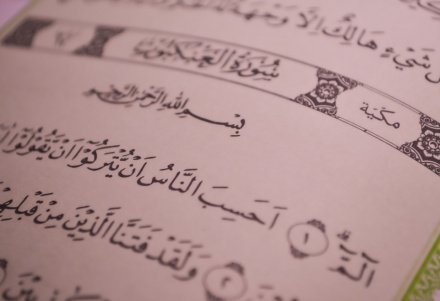 شَيْءٍ هَالِكٌ اِلَّا وَجْهَهُ
مكية سُورَةُ الْعَنْكَبُوتِ
بِسْمِ اللهِ الرَّحْمٰنِ الرَّحِيمِ
الٓمٓ ١ اَحَسِبَ النَّاسُ اَنْ يُتْرَكُوٓا اَنْ يَقُولُوٓا
٢ وَلَقَدْ فَتَنَّا الَّذِينَ مِنْ قَبْلِهِمْ